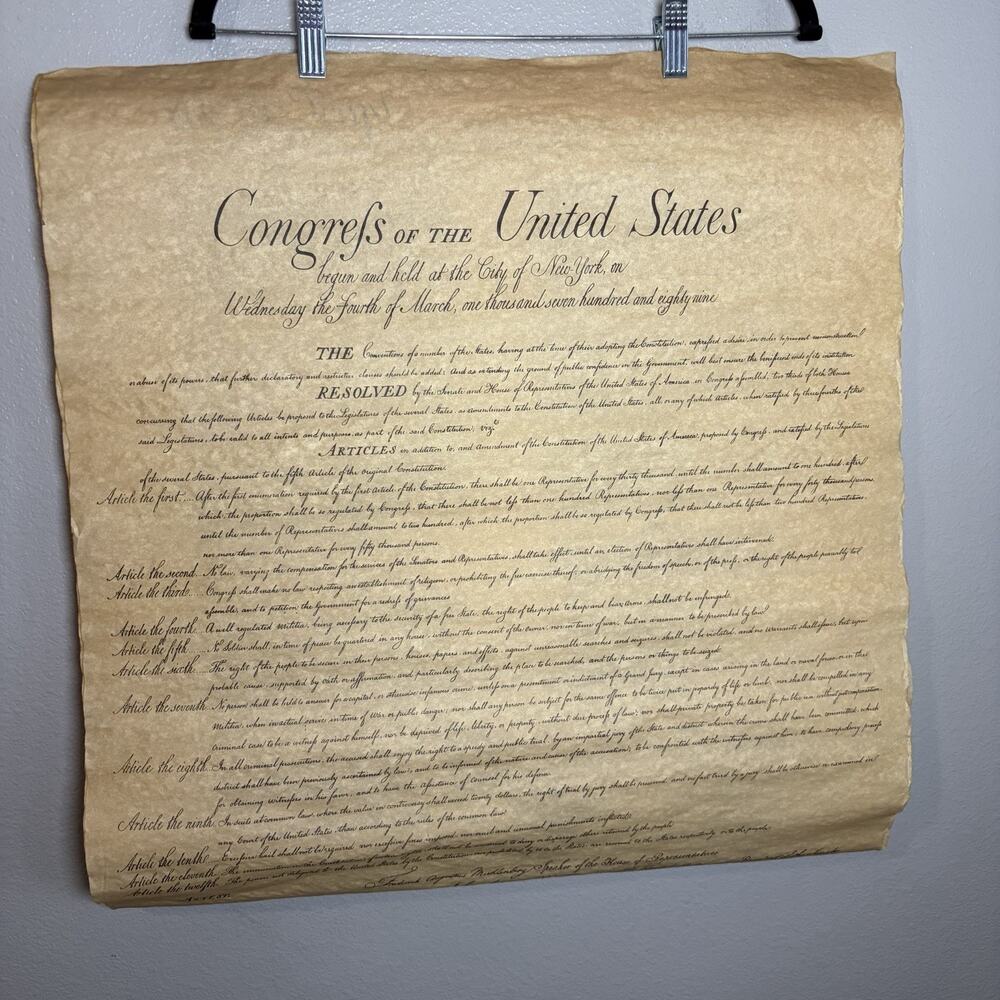 Congreſs OF THE United States
begun and held at the City of New-York, on
Wednesday the Fourth of March, one thousand seven hundred and eighty nine
THE Conventions of a number of the States, having at the time of their adopting the Constitution, expreſsed a desire, in order to prevent misconstruction
or abuse of its powers, that further declaratory and restrictive clauses should be added: And as extending the ground of public confidence in the Government, will best ensure the beneficent ends of its institution
RESOLVED by the Senate and House of Representatives of the United States of America, in Congreſs aſsembled, two thirds of both Houses
concurring, that the following Articles be proposed to the Legislatures of the several States, as amendments to the Constitution of the United States, all or any of which Articles, when ratified by three fourths of the
said Legislatures, to be valid to all intents and purposes, as part of the said Constitution, vizt
ARTICLES in addition to, and Amendment of the Constitution of the United States of America, proposed by Congreſs, and ratified by the Legislatures
of the several States, pursuant to the fifth Article of the original Constitution.
Article the first.... After the first enumeration required by the first Article of the Constitution, there shall be one Representative for every thirty thousand, until the number shall amount to one hundred, after
which, the proportion shall be so regulated by Congreſs, that there shall be not leſs than one hundred Representatives, nor leſs than one Representative for every forty thousand persons,
until the number of Representatives shall amount to two hundred, after which, the proportion shall be so regulated by Congreſs, that there shall not be leſs than two hundred Representatives,
nor more than one Representative for every fifty thousand persons.
Article the second... No law, varying the compensation for the services of the Senators and Representatives, shall take effect, until an election of Representatives shall have intervened.
Article the third.... Congreſs shall make no law respecting an establishment of religion, or prohibiting the free exercise thereof; or abridging the freedom of speech, or of the preſs, or the right of the people peaceably to
aſsemble, and to petition the Government for a redreſs of grievances
Article the fourth. A well regulated Militia, being neceſsary to the security of a free State, the right of the people to keep and bear Arms, shall not be infringed.
Article the fifth.... No Soldier shall, in time of peace be quartered in any house, without the consent of the owner, nor in time of war, but in a manner to be prescribed by law.
Article the sixth.... The right of the people to be secure in their persons, houses, papers, and effects, against unreasonable searches and seizures, shall not be violated, and no Warrants shall iſsue, but upon
probable cause, supported by oath or affirmation, and particularly describing the place to be searched, and the persons or things to be seized.
Article the seventh. No person shall be held to answer for a capital, or otherwise infamous crime, unleſs on a presentment or indictment of a Grand Jury, except in cases arising in the land or naval forces, or in the
Militia, when in actual service in time of War or public danger; nor shall any person be subject for the same offence to be twice put in jeopardy of life or limb, nor shall be compelled in any
criminal case to be a witneſs against himself, nor be deprived of life, liberty, or property, without due proceſs of law; nor shall private property be taken for public use without just compensation.
Article the eighth. In all criminal prosecutions, the accused shall enjoy the right to a speedy and public trial, by an impartial jury of the State and district wherein the crime shall have been committed, which
district shall have been previously ascertained by law, and to be informed of the nature and cause of the accusation; to be confronted with the witneſses against him; to have compulsory proceſs
for obtaining witneſses in his favor, and to have the aſsistance of counsel for his defence.
Article the ninth. In suits at common law, where the value in controversy shall exceed twenty dollars, the right of trial by jury shall be preserved, and no fact tried by a jury shall be otherwise re-examined in
any Court of the United States, than according to the rules of the common law.
Article the tenth. Exceſsive bail shall not be required, nor exceſsive fines imposed, nor cruel and unusual punishments inflicted.
Article the eleventh. The enumeration in the Constitution, of certain rights, shall not be construed to deny or disparage others retained by the people.
Article the twelfth. The powers not delegated to the United States by the Constitution, nor prohibited by it to the States, are reserved to the States respectively, or to the people.
ATTEST,
Frederick Augustus Muhlenberg Speaker of the House of Representatives